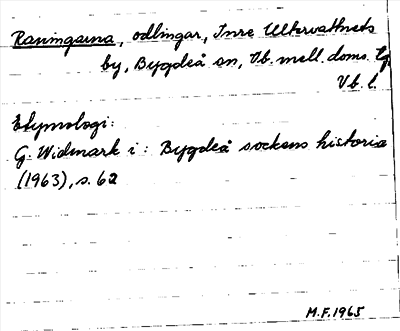 Raningarna, odlingar, Inre Ultervattnets
by, Bygdeå sn, Vb. mell. doms.
Vb. l.
Etymologi:
G. Widmark i: Bygdeå sockens historia
(1963), s. 62
M.F. 1965